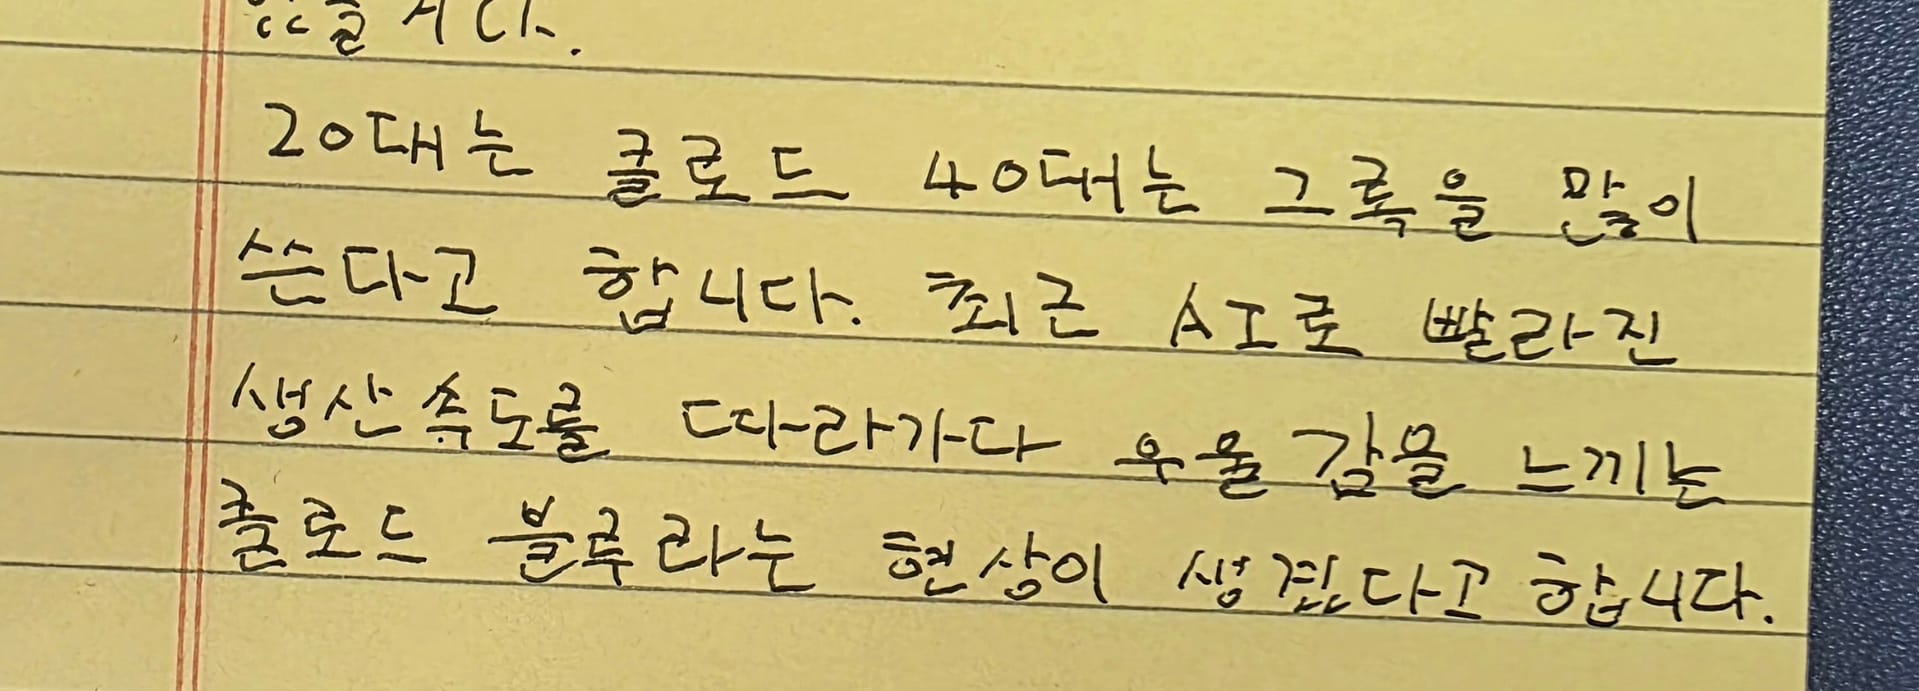 20대는 클로드 40대는 그록을 많이
쓴다고 합니다. 최근 AI로 빨라진
생산속도를 따라가다 우울감을 느끼는
클로드 블루라는 현상이 생겼다고 합니다.